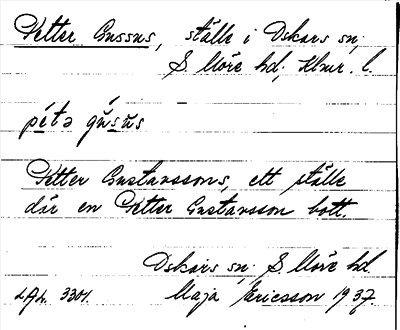 Petter Gussus, ställe i Oskars sn,
S Möre hd, Klmr. l.
pétə gúsus
Petter Gustavssons, ett ställe
där en Petter Gustavsson bott.
Oskars sn. S Möre hd.
LAL. 3301. Maja Ericsson 1937.